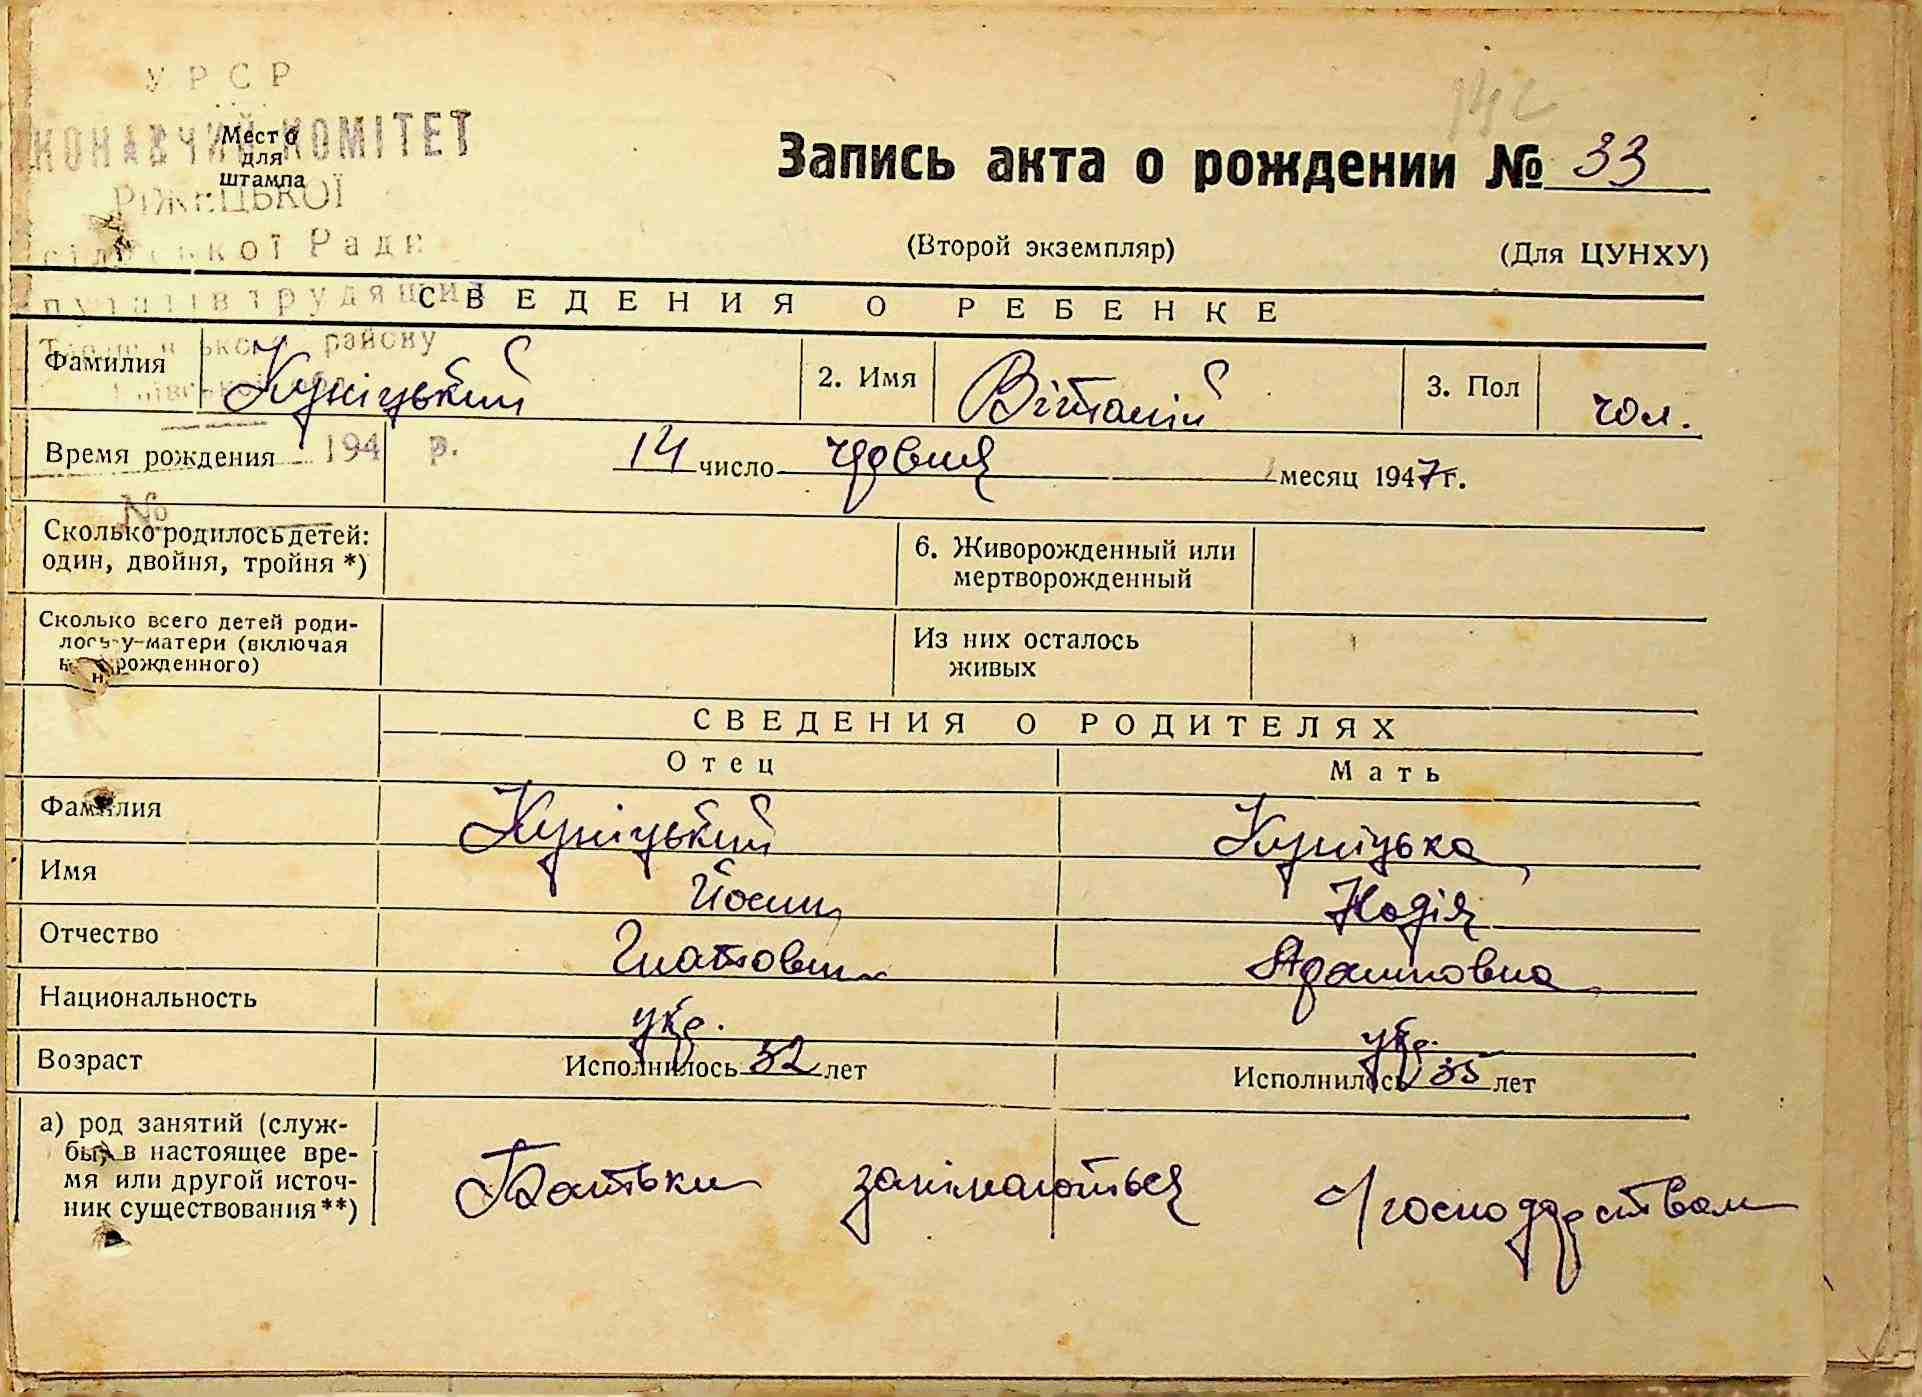 УРСР
КОНАВЧИЙ КОМІТЕТ
Место
для
штампа
РІЖЕЦЬКОЇ
сільської Ради
путатів трудящих
району
194 р.
№
Запись акта о рождении № 33
(Второй экземпляр) (Для ЦУНХУ)
СВЕДЕНИЯ О РЕБЕНКЕ
Фамилия Куніцький 2. Имя Віталій 3. Пол чол.
Время рождения 14 число месяц 1947 г.
Сколько родилось детей: 6. Живорожденный или
один, двойня, тройня *) мертворожденный
Сколько всего детей роди- Из них осталось
лось у матери (включая живых
рожденного)
СВЕДЕНИЯ О РОДИТЕЛЯХ
Отец Мать
Фамилия Куніцький Куніцька
Имя Йосип Надія
Отчество Гнатович Адамовна
Национальность укр. укр.
Возраст Исполнилось 32 лет Исполнилось 35 лет
а) род занятий (служ-
бы) в настоящее вре-
мя или другой источ-
ник существования**)
Батьки занімаються с/господарством